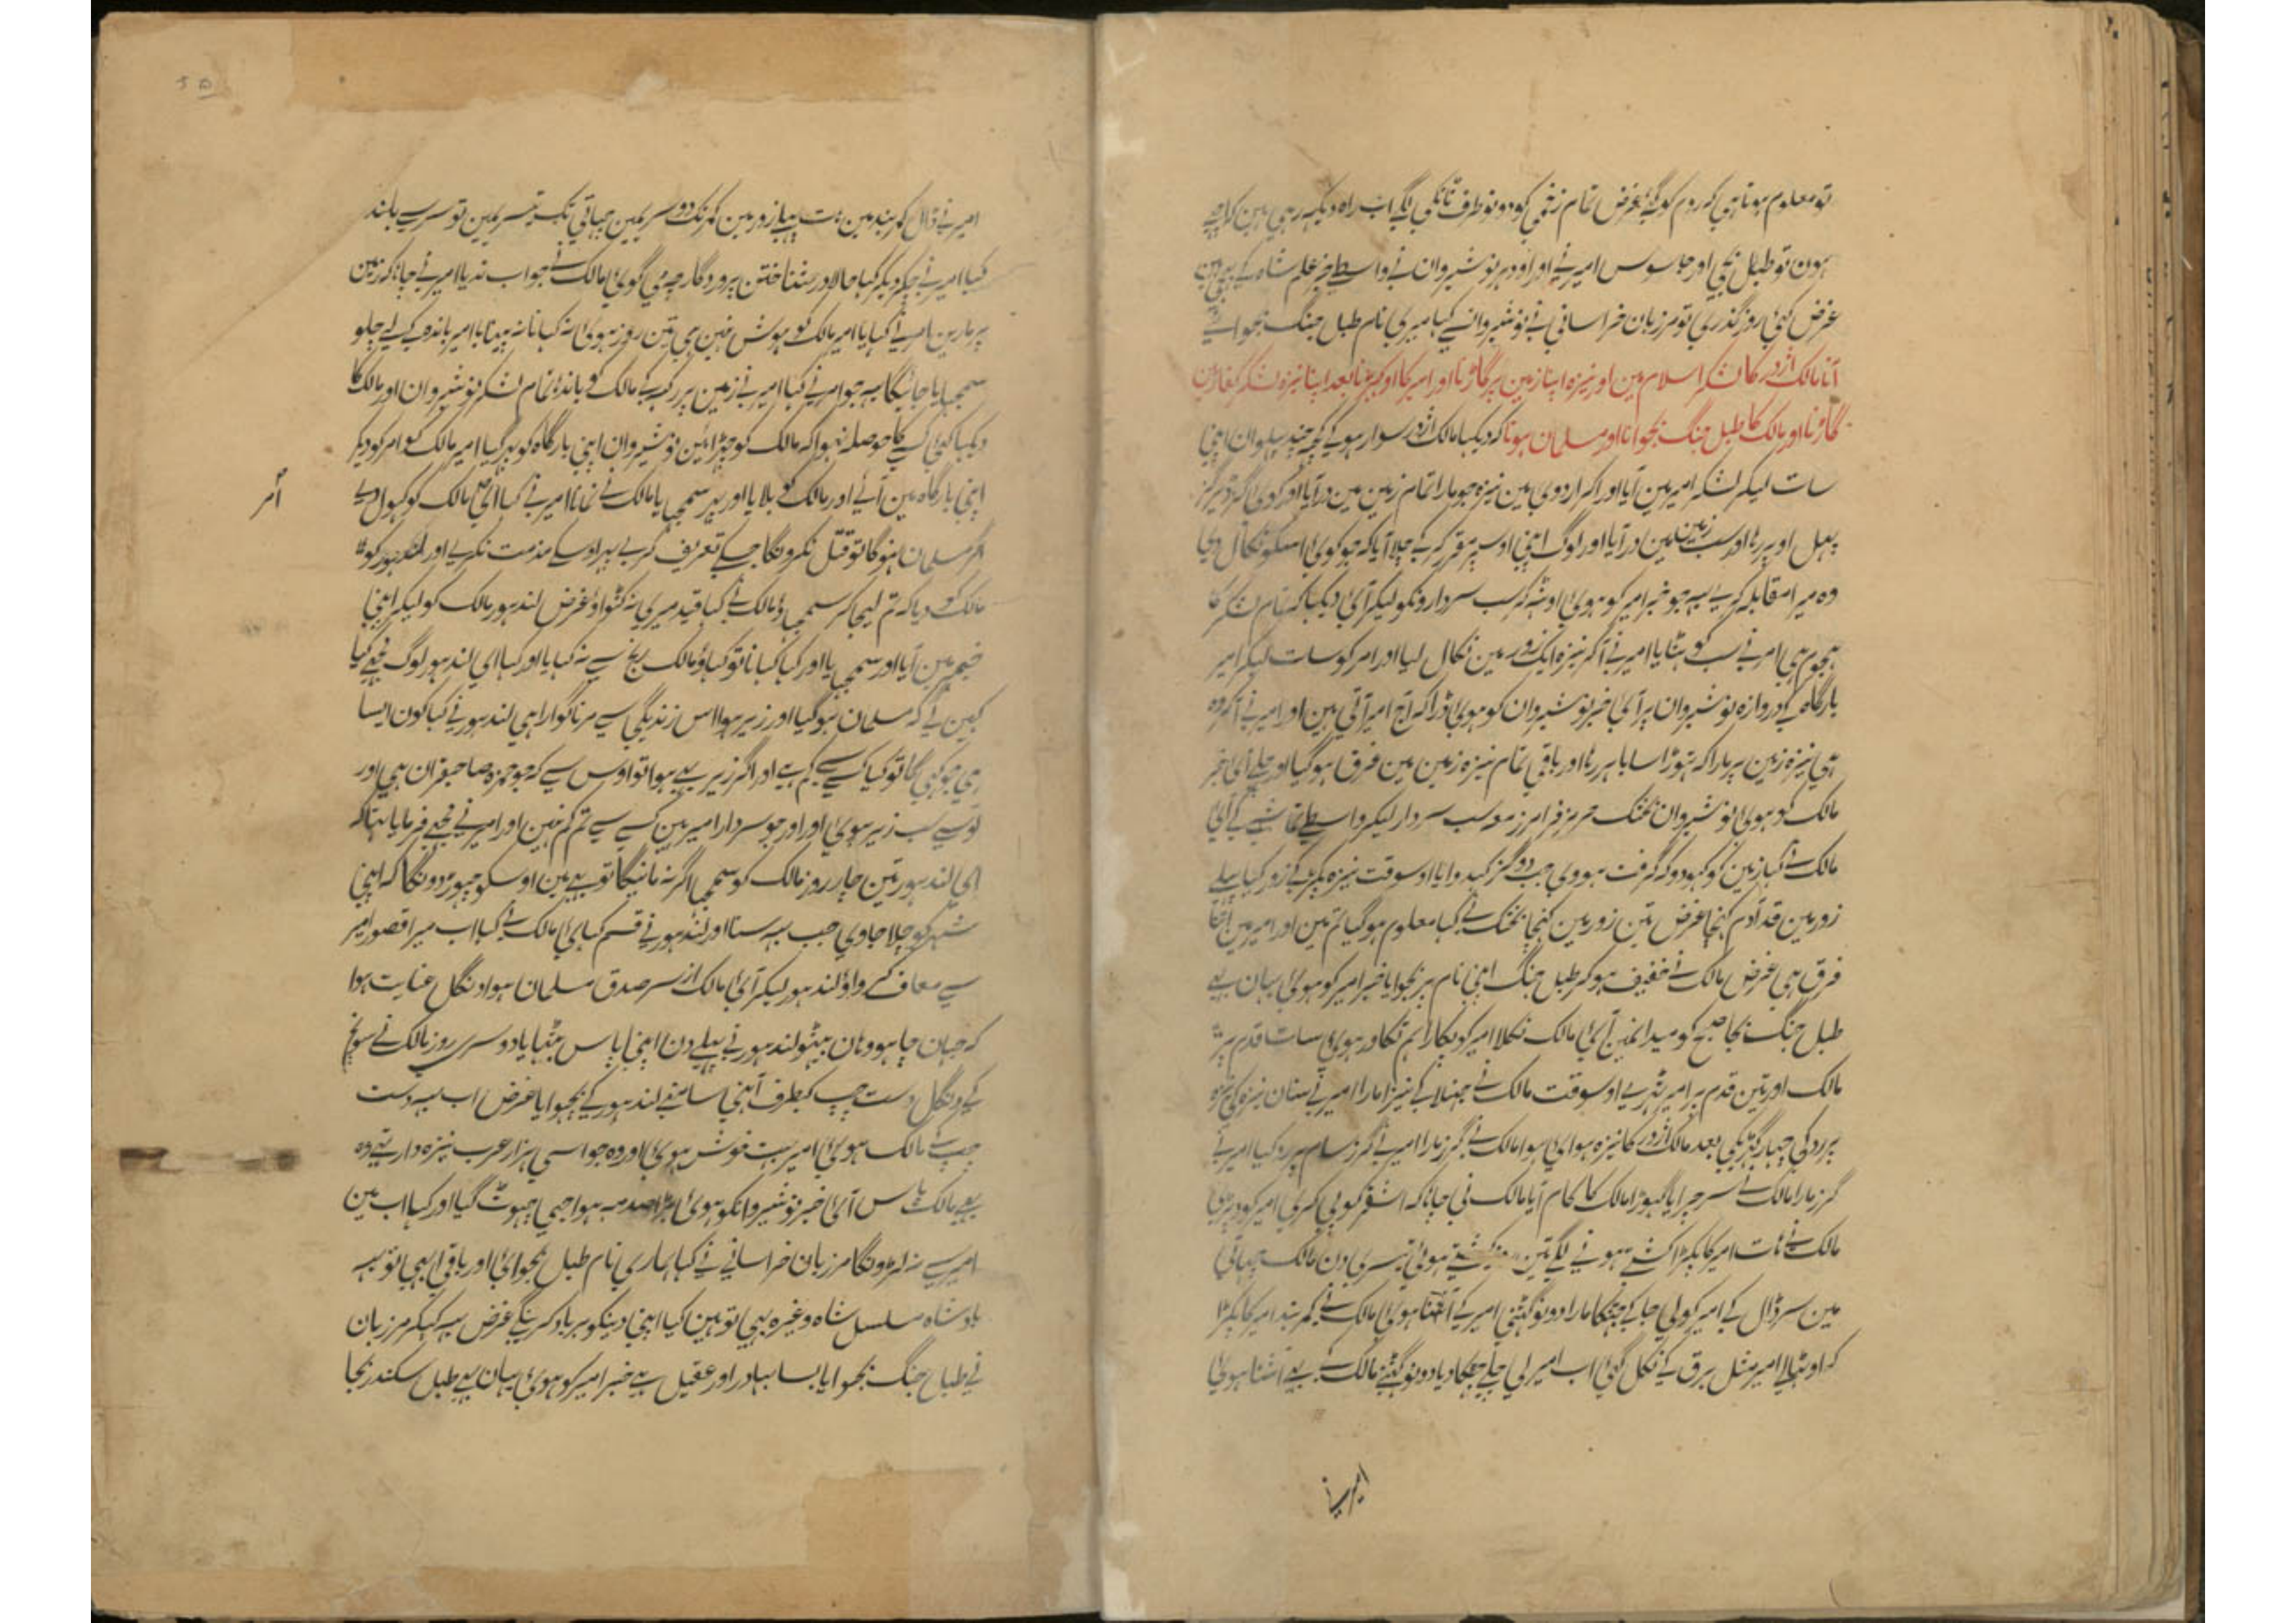 تو معلوم ہوتا ہی کہ روم کو گئے غرض تمام زخمی کو دونو طرف ٹانکی لگے اب راہ دیکہہ رہی ہین کہ اچہے
ہون تو طبل بجی اور جاسوس امیر نے اور اودہر نوشیروان نے واسطے خبر علم شاہ کے بہیجی ہین
غرض کئی روز گذری تو مرزبان خراسانی نے نوشیروان سے کہا میری نام طبل جنگ بجوائے
آنا مالک اژدر کا لشکر اسلام مین اور نیزہ اپنا زمین پر گاڑنا اور امیر کا اوکہیڑنا بعد اپنا نیزہ لشکر کفار مین
گاڑنا اور مالک کا طبل جنگ بجوانا اور مسلمان ہونا کہ دیکہا مالک اژدر سوار ہوکے کچہہ چند پہلوان اپنی
سات لیکر لشکر امیر مین آیا اور آکر اردوی مین نیزہ جو مارا تمام زمین مین در آیا اور
پہل اوپر رہا اور سب زمین مین در آیا اور لوگ اپنی اوسپر مقرر کر کے چلا آیا کہ جو کوئی اسکو نکال دی
وہ میرا مقابلہ کرے یہہ جو خبر امیر کو ہوئی اوٹہہ کر سب سردارونکو لیکر آئی دیکہا کہ تمام لشکر کا
ہجوم ہی امیر نے سب کو ہٹایا امیر نے آکر نیزہ ایک زور مین نکال لیا اور امیر کو سات لیکر امیر
بارگاہ کے دروازہ نوشیروان پر آئی خبر نوشیروان کو ہوئی ڈرا کہ آج امیر آتی ہین اور امیر نے آکر وہ
ہی نیزہ زمین پر مارا کہ تہوڑا سا باہر رہا اور باقی تمام نیزہ زمین مین غرق ہوگیا اور چلے آئی خبر
مالک کو ہوئی نوشیروان بختک ہرمز فرامرز معہ سب سردار لیکر واسطے تماشے کے آئی
مالک نے کہا زمین کو کہودو کہ گرفت ہووی جب دو گز کہدوایا اوسوقت نیزہ پکڑ کے زور کیا پہلے
زور مین قد آدم کہنچا غرض تین زور مین کہنچا بختک نے کہا معلوم ہوگیا تم مین اور امیر مین اتنا
فرق ہی غرض مالک نے خفیف ہوکر طبل جنگ اپنی نام پر بجوایا خبر امیر کو ہوئی یہان بہی
طبل جنگ بجا صبح کو میدانمین آئی مالک نکلا امیر کو پکارا ہم تگاور ہوئی سات قدم پر
مالک اور تین قدم پر امیر ٹہرے اوسوقت مالک نے جہنجلا کے نیزا مارا امیر نے سنان نیزہ کی نیزہ
پر رد کی چہار گہڑی بعد مالک اژدر کا نیزہ ہوائی ہوا مالک نے گرز مارا امیر نے گرز سام پر رد کیا امیر نے
گرز مارا مالک نے سر چرایا گہوڑا مالک کا کام آیا مالک نی جانا کہ اشقر کو پی کری امیر کود پڑی
مالک نے ہات امیر کا پکڑا کشتے ہونے لگے تین روز کشتے ہوئی تیسری دن مالک چہاتی
مین سر ڈال کے امیر کو لی جا کے جہٹکا مارا دونو گہٹنی امیر کے آشنا ہوئی مالک نے کمربند امیر کا پکڑا
کہ اوٹہالے امیر مثل برق کے نکل گئی اب امیر لی چلے جہٹکا دیا دونو گہٹنے مالک کے بہی آشنا ہوئی
امیر نے
امیر نے ڈال کمربند مین ہات پہلے زور مین کمر تک دوسریمین چہاتی تک تیسریمین تو سر سے بلند
کیا امیر نے چکر دیکر کہا حالا در شناختن پروردگار چہ می گوئی مالک نے جواب ندیا امیر نے چاہا کہ زمین
پر مارین امیر نے کہا یا امیر مالک کو ہوش نہین ہی تین روز ہوئی نہ کہانا نہ پینا یا امیر باندہ کے لے چلو
سمجہایا جائیگا یہہ جو امیر نے کہا امیر نے زمین پر رکہہ کے مالک کو باندہا تمام لشکر نوشیروان اور مالک کا
دیکہا کئی کسے کا حوصلہ نہوا کہ مالک کو چہڑائین نوشیروان اپنی بارگاہ کو پہر گیا امیر مالک کو امیر کو دیکر
اپنی بارگاہ مین آئے اور مالک کو بلایا اور پہر سمجہایا مالک نے نمانا امیر نے کہا مالک کو کہول دی
امر
اگر مسلمان نہوگا تو قتل نکرونگا جسکے تعریف کرے پہر اوسکے مذمت نکرے اور لندہور کو
مالک کو دیا کہ تم لیجا کر سمجہاؤ مالک نے کہا قید میری نہ کٹواؤ غرض لندہور مالک کو لیکر اپنی
خیمہ مین آیا اور سمجہایا اور کہا کہانا تو کہاؤ مالک رنج سے نہ کہایا اور کہا ای لندہور لوگ مجہے کیا
کہین گے کہ مسلمان ہوگیا اور زیر ہوا اس زندگی سے مرنا گوارا ہی لندہور نے کہا کون ایسا
ہی جو کہی گا تو کیا کسے سے کم ہے اور اگر زیر بہی ہوا تو اوس سے کہ جو حمزہ صاحبقران ہی اور
اوسے سب زیر ہوئی اور اور جو سردار امیر ہین کسے سے تم کم نہین اور امیر نے مجہے فرمایا تہا کہ
ای لندہور تین چار روز مالک کو سمجہا اگر نہ مانیگا تو بہی مین اوسکو چہوڑ دونگا کہ اپنی
شہر کو چلا جاوی جب یہہ سنا اور لندہور نے قسم کہائی مالک نے کہا اب میرا قصور امیر
سے معاف کرواؤ لندہور لیکر آئی مالک از سر صدق مسلمان ہوا دنگل عنایت ہوا
کہ جہان چاہو وہان بیٹہو لندہور نے پہلے دن اپنی پاس بٹہایا دوسری روز مالک نے سونچ
کے دنگل دست چپ کیطرف اپنی سامنہے لندہور کے بچہوایا غرض اب یہہ دست
چپ کے مالک ہوئی امیر بہت خوش ہوئی اور وہ جو اسی ہزار عرب نیزہ دار تہے وہ
بہی مالک پاس آئی خبر نوشیروانکو ہوئی بڑا صدمہ ہوا جی چہوٹ گیا اور کہا اب مین
امیر سے نہ لڑونگا مرزبان خراسانی نے کہا ہماری نام طبل بجوائی اور باقی ابہی تو یہہ
بادشاہ سلسل شاہ وغیرہ بہی تو ہین کیا اپنی دینکو برباد کرینگے غرض یہہ کہکر مرزبان
نے طبل جنگ بجوایا بسا بہادر اور عقیل ہے خبر امیر کو ہوئی یہان بہی طبل سکندر بجا